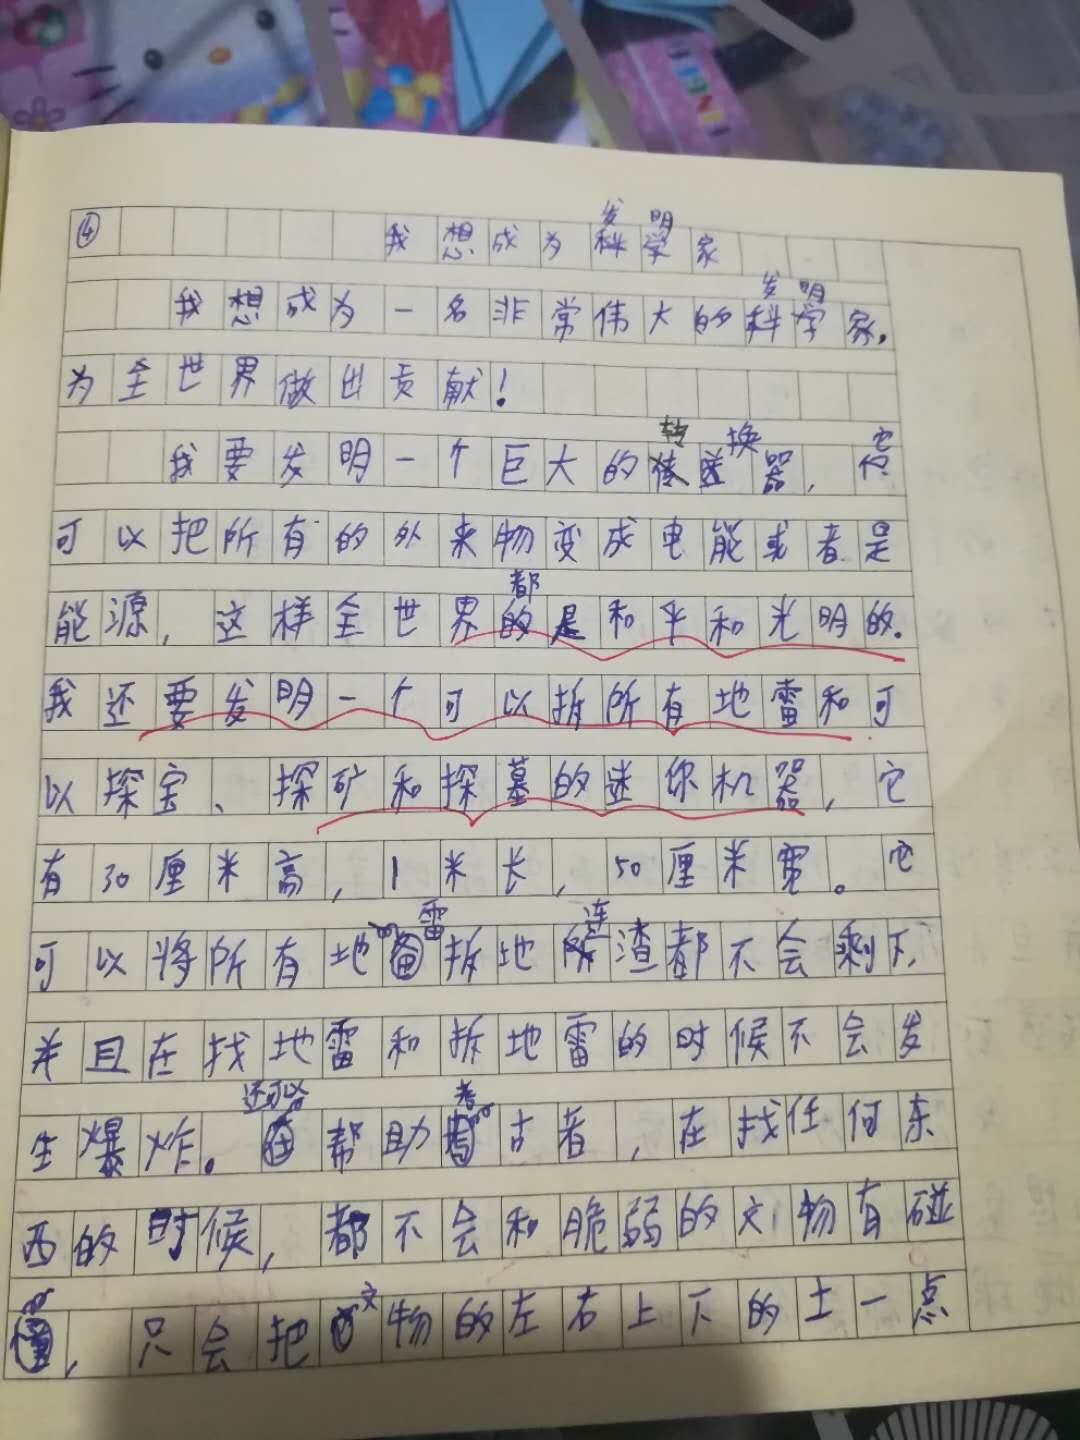 ④ 我想成为科学家
发明
我想成为一名非常伟大的科学家.
发明
为全世界做出贡献!
我要发明一个巨大的传送器,
转换 它
可以把所有的外来物变成电能或者是
能源,这样全世界的是和平和光明的.
都
我还要发明一个可以拆所有地雷和可
以探宝、探矿和探墓的迷你机器,它
有30厘米高,1米长,50厘米宽。它
可以将所有地拆地渣都不会剩下,
雷 连
并且在找地雷和拆地雷的时候不会发
生爆炸。帮助古者,在找任何东
还可以 考
西的时候,都不会和脆弱的文物有碰
,只会把物的左右上下的土一点
文